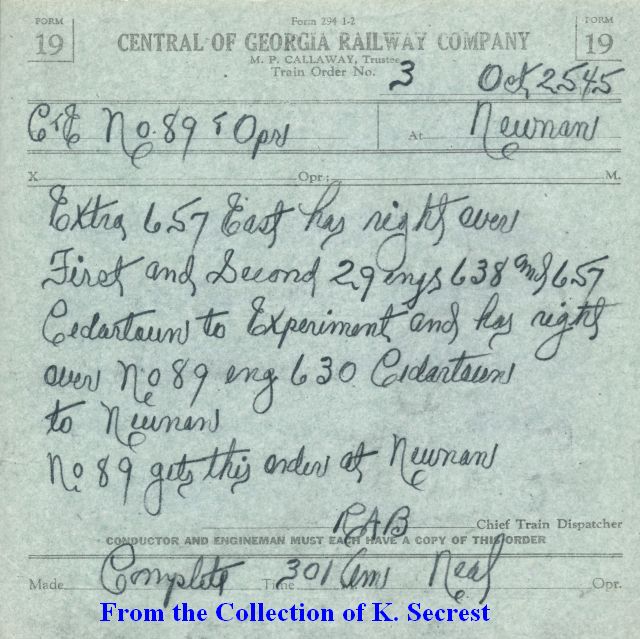 FORM 19
Form 294 1-2
FORM 19
CENTRAL OF GEORGIA RAILWAY COMPANY
M. P. CALLAWAY, Trustee
Train Order No. 3 Oct 25 45
C&E No. 89 & Oprs At Newnan
X Opr.; M.
Extra 657 East has right over
First and Second 29 engs 638 and 657
Cedartown to Experiment and has right
over No 89 eng 630 Cedartown
to Newnan
No. 89 gets this order at Newnan
RAB Chief Train Dispatcher
CONDUCTOR AND ENGINEMAN MUST EACH HAVE A COPY OF THIS ORDER
Made Complete Time 301 Am Neal Opr.
From the Collection of K. Secrest